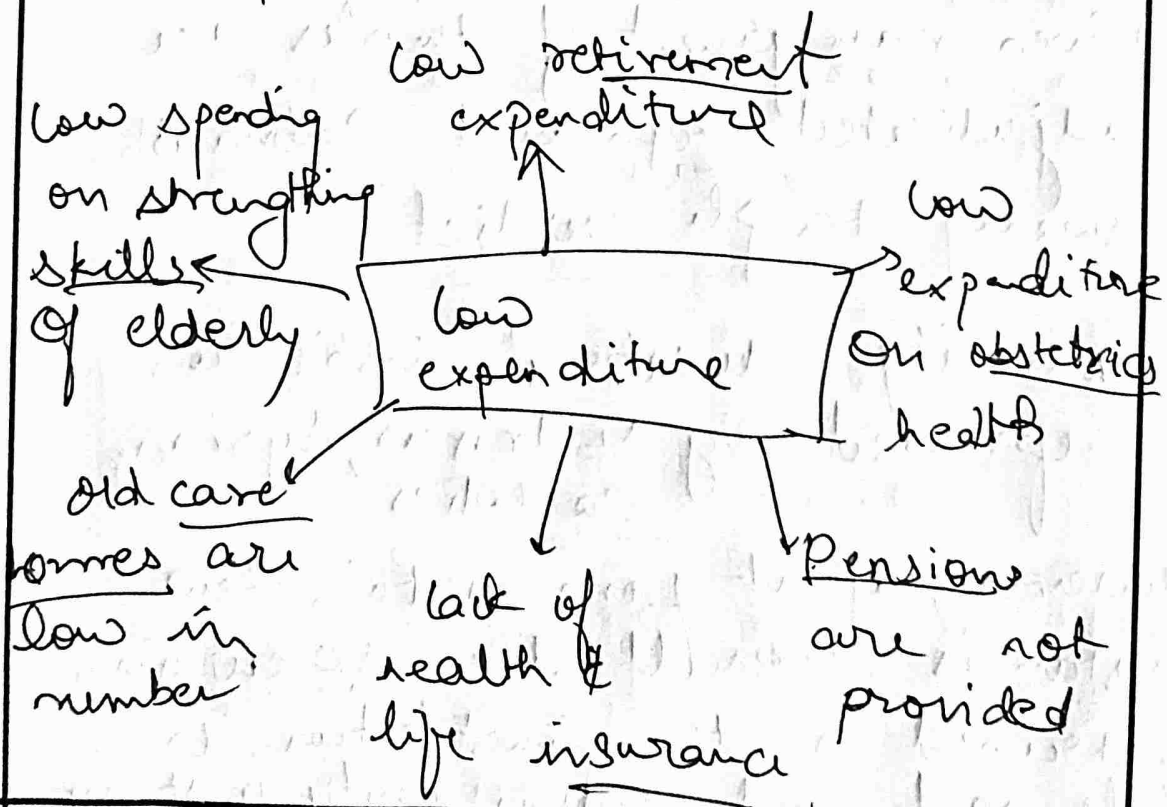 low retirement
expenditure
low spending
on strengthing
skills
of elderly
low
expenditure
on obstetrics
health
low
expenditure
old care
homes are
low in
number
lack of
health &
life insurance
Pensions
are not
provided